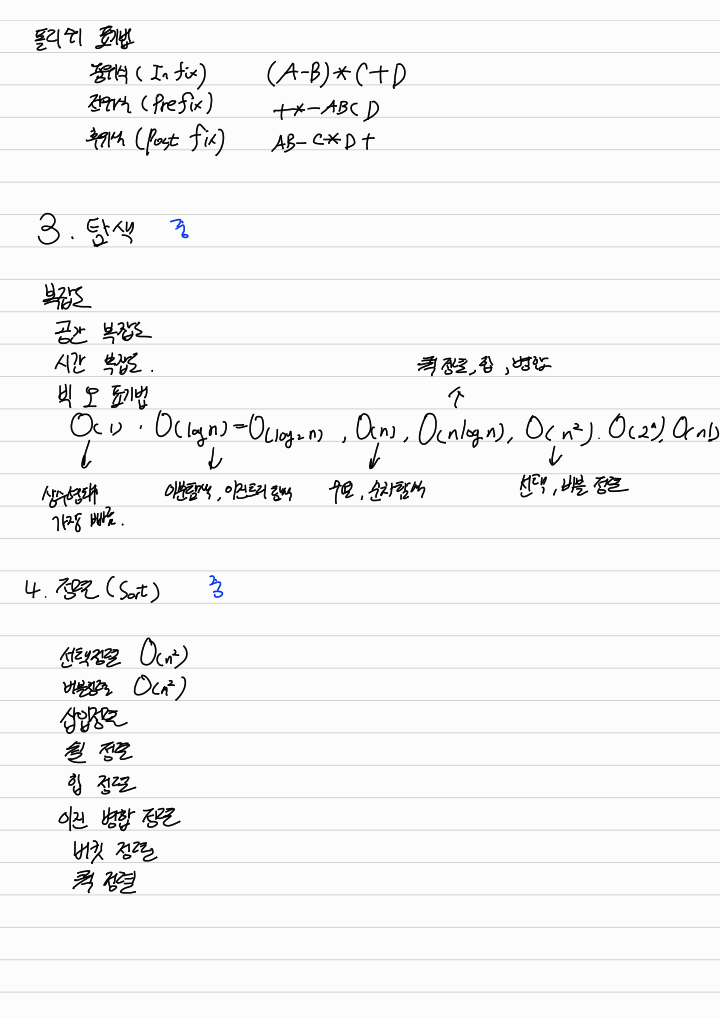 폴리쉬 표기법
중위식 (Infix) (A-B)*C+D
전위식 (Prefix) +*-ABCD
후위식 (Post fix) AB-C*D+
3. 탐색 중
복잡도
공간 복잡도
시간 복잡도.
퀵 정렬, 힙, 병합
빅 오 표기법
O(1), O(log n) = O(log₂ n), O(n), O(n log n), O(n²). O(2ⁿ), O(n!)
↓ ↓ ↓ ↑ ↓
상수형태 이분탐색, 이진트리 탐색 순차탐색 선택, 버블 정렬
가장 빠름.
4. 정렬 (Sort) 중
선택정렬 O(n²)
버블정렬 O(n²)
삽입정렬
쉘 정렬
힙 정렬
이진 병합 정렬
버킷 정렬
퀵 정렬